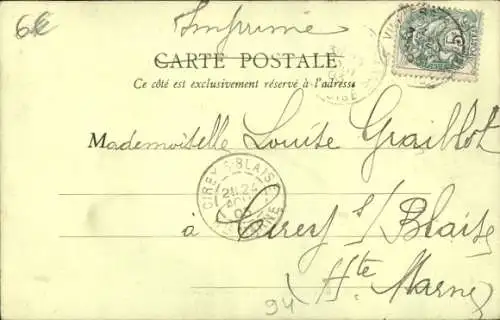 6€
Imprimé
CARTE POSTALE
Ce côté est exclusivement réservé à l'adresse
Mademoiselle Louise Graillot
CIREY S BLAISE
à Cirey s/ Blaise
Hte Marne
94